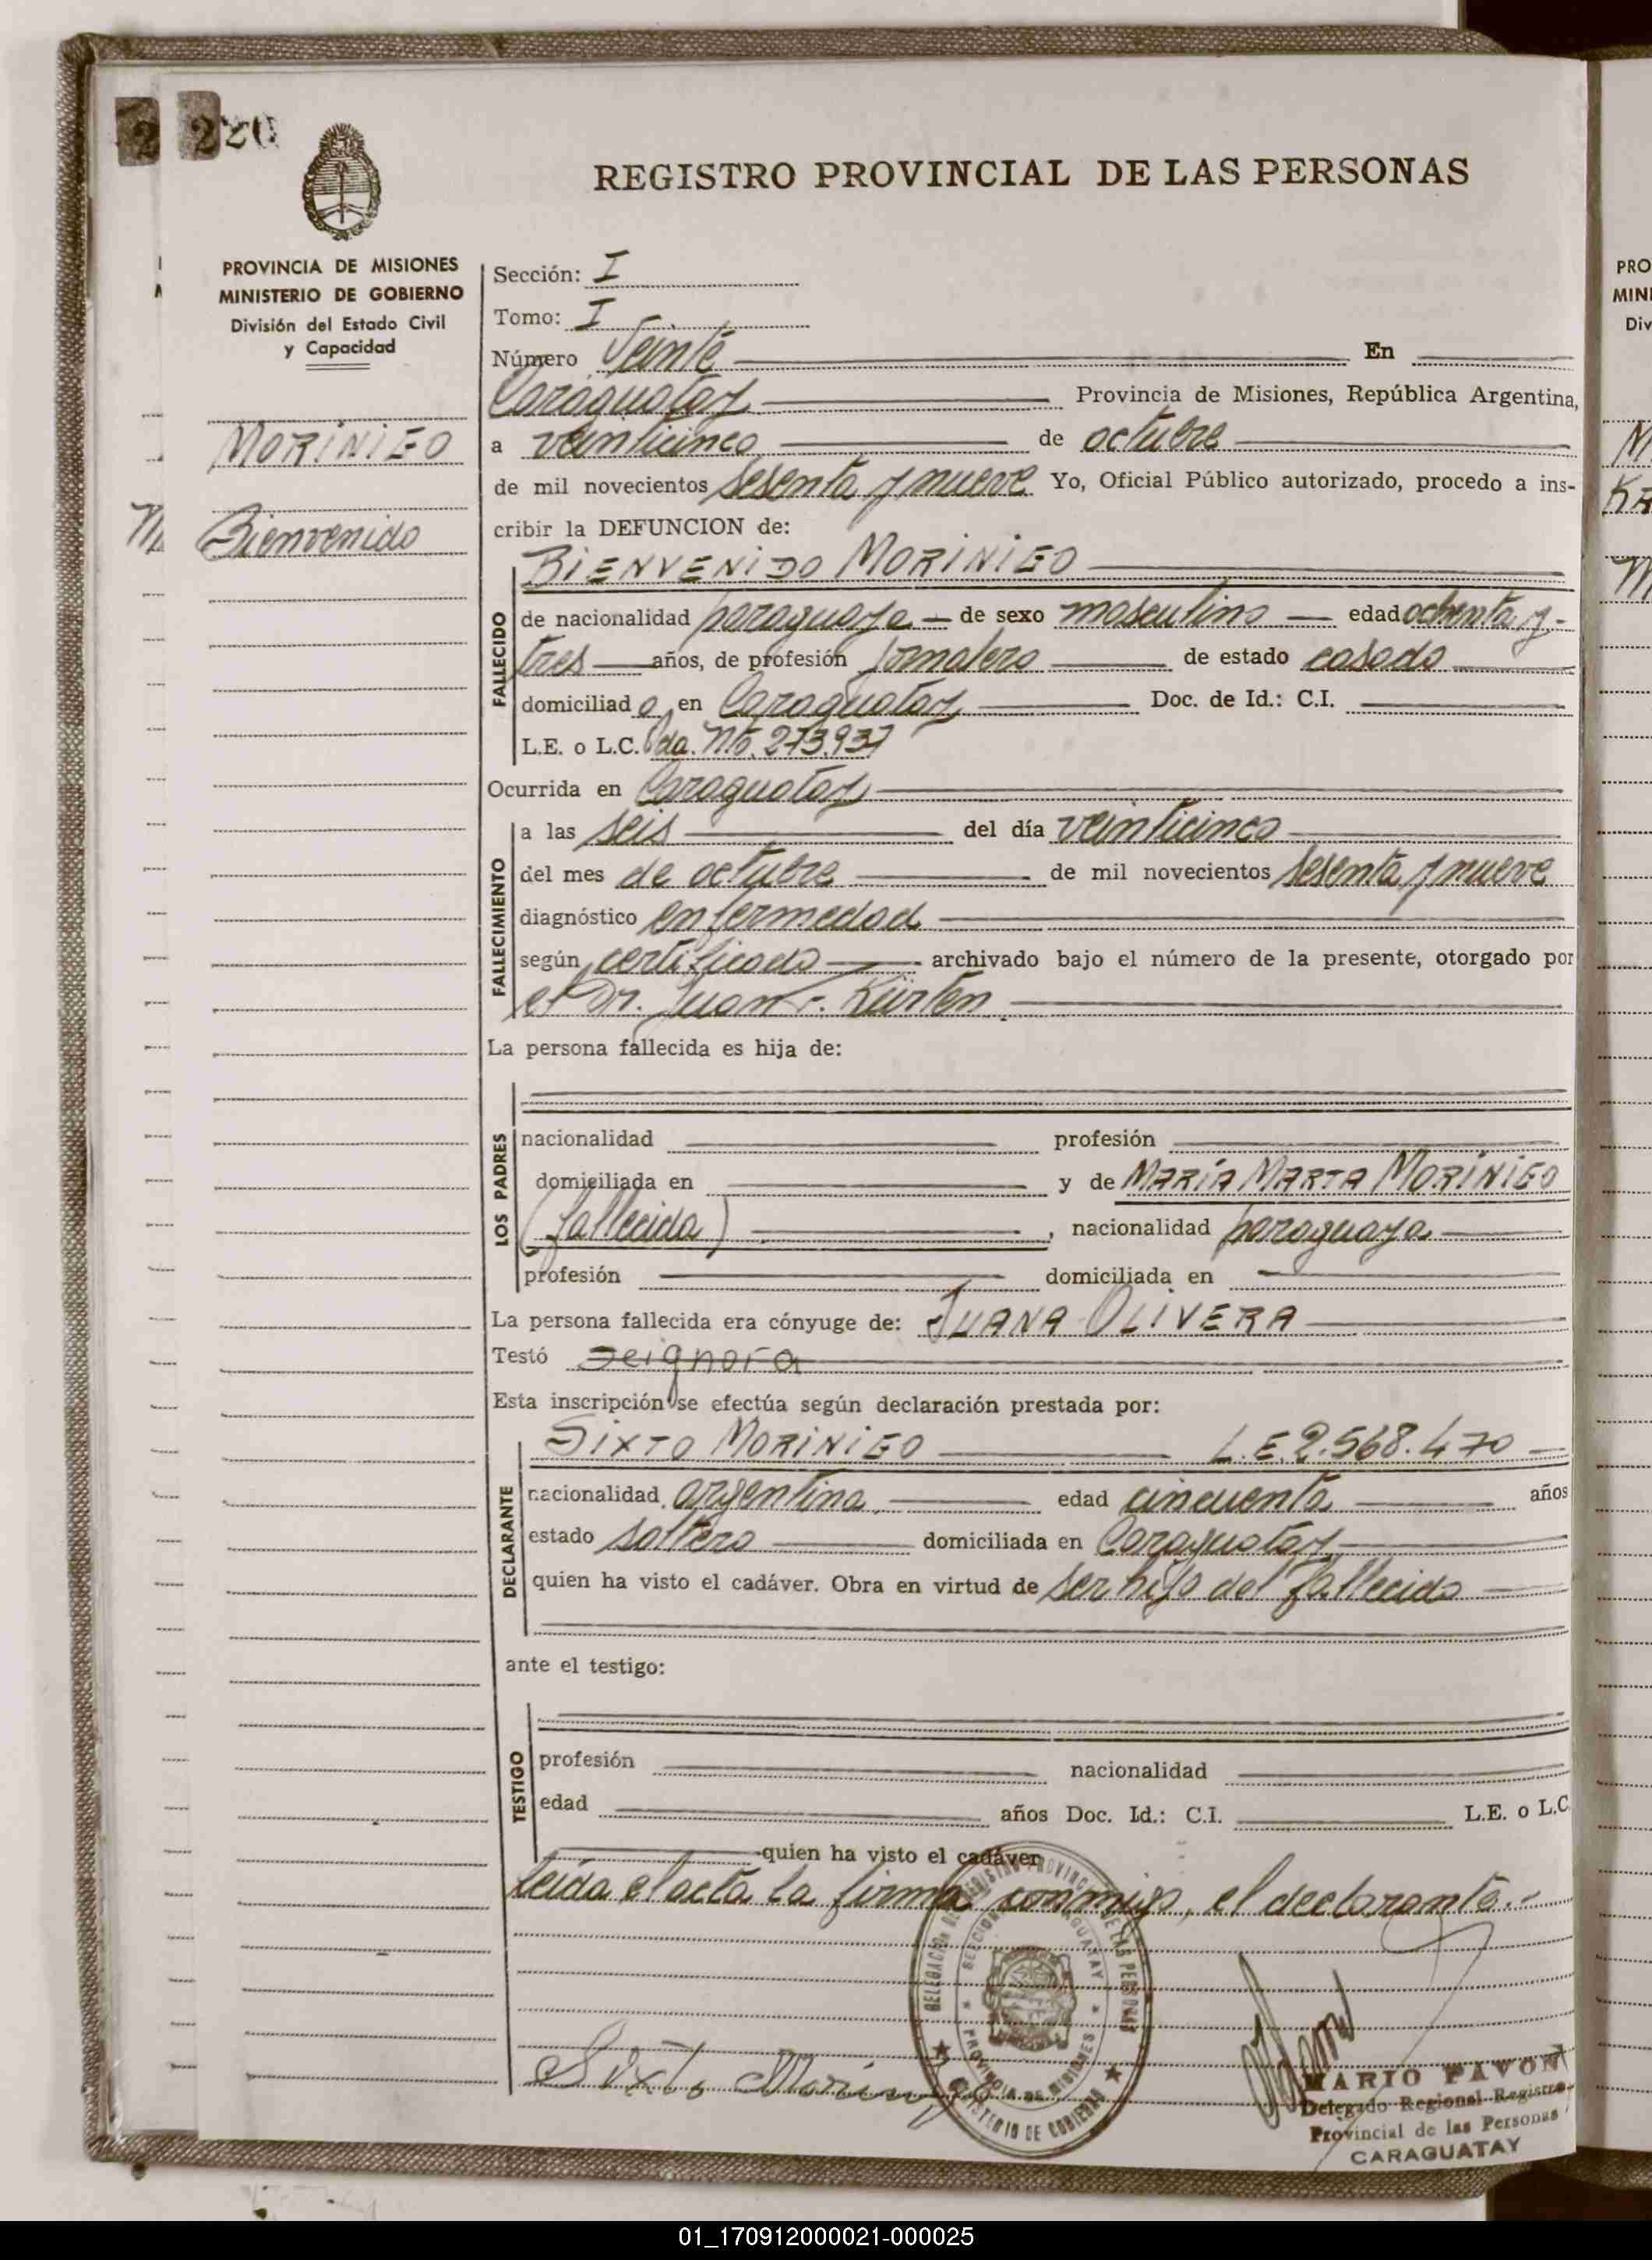 220
REGISTRO PROVINCIAL DE LAS PERSONAS
PROVINCIA DE MISIONES
MINISTERIO DE GOBIERNO
División del Estado Civil
y Capacidad
MORINIGO
Bienvenido
Sección: I
Tomo: I
Número Veinte En
Caraguatay Provincia de Misiones, República Argentina,
a veinticinco de octubre
de mil novecientos sesenta y nueve Yo, Oficial Público autorizado, procedo a ins-
cribir la DEFUNCION de:
FALLECIDO
BIENVENIDO MORINIGO
de nacionalidad paraguaya de sexo masculino edad ochenta y
tres años, de profesión jornalero de estado casado
domiciliad o en Caraguatay Doc. de Id.: C.I.
L.E. o L.C. No. 273.937
Ocurrida en Caraguatay
FALLECIMIENTO
a las seis del día veinticinco
del mes de octubre de mil novecientos sesenta y nueve
diagnóstico enfermedad
según certificado archivado bajo el número de la presente, otorgado por
el Dr. Juan Kürten
La persona fallecida es hija de:
LOS PADRES
nacionalidad profesión
domiciliada en y de MARÍA MARTA MORINIGO
(fallecida), nacionalidad paraguaya
profesión domiciliada en
La persona fallecida era cónyuge de: JUANA OLIVERA
Testó
Esta inscripción se efectúa según declaración prestada por:
DECLARANTE
SIXTO MORINIGO L.E. 2.568.470
nacionalidad argentina edad cincuenta años
estado soltero domiciliada en Caraguatay
quien ha visto el cadáver. Obra en virtud de ser hijo del fallecido
ante el testigo:
TESTIGO
profesión nacionalidad
edad años Doc. Id.: C.I. L.E. o L.C
quien ha visto el cadáver
Leída el acta la firma conmigo, el declarante.-
DELEGACION DEL REGISTRO PROVINCIAL DE LAS PERSONAS
SECCION CARAGUATAY
PROVINCIA DE MISIONES
MINISTERIO DE GOBIERNO
Sixto Morinigo
MARIO PAVON
Delegado Regional Registro
Provincial de las Personas
CARAGUATAY
PRO
MINI
Div
01_170912000021-000025